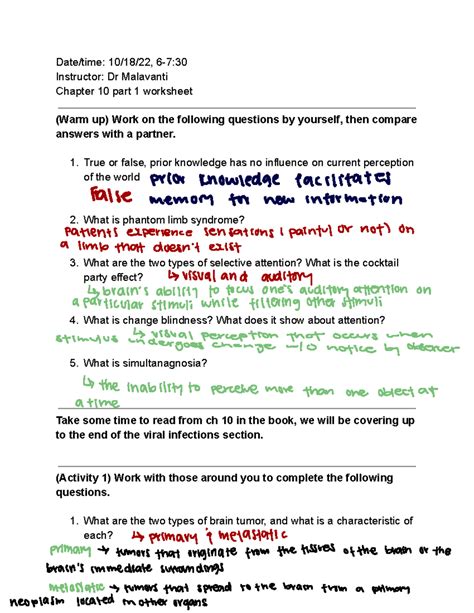 Date/time: 10/18/22, 6-7:30
Instructor: Dr Malavanti
Chapter 10 part 1 worksheet
(Warm up) Work on the following questions by yourself, then compare
answers with a partner.
1. True or false, prior knowledge has no influence on current perception
of the world prior knowledge facilitates
False memory for new information
2. What is phantom limb syndrome?
Patients experience sensations (painful or not) on
a limb that doesn't exist
3. What are the two types of selective attention? What is the cocktail
party effect? ↳ visual and auditory
↳ brain's ability to focus one's auditory attention on
a particular stimuli while filtering other stimuli
4. What is change blindness? What does it show about attention?
↳ visual perception that occurs when
stimulus undergoes change w/o notice by observer
5. What is simultanagnosia?
↳ the inability to perceive more than one object at
a time
Take some time to read from ch 10 in the book, we will be covering up
to the end of the viral infections section.
(Activity 1) Work with those around you to complete the following
questions.
1. What are the two types of brain tumor, and what is a characteristic of
each? ↳ primary & metastatic
primary → tumors that originate from the tissues of the brain or the
brain's immediate surroundings
metastatic → tumors that spread to the brain from a primary
neoplasm located in other organs